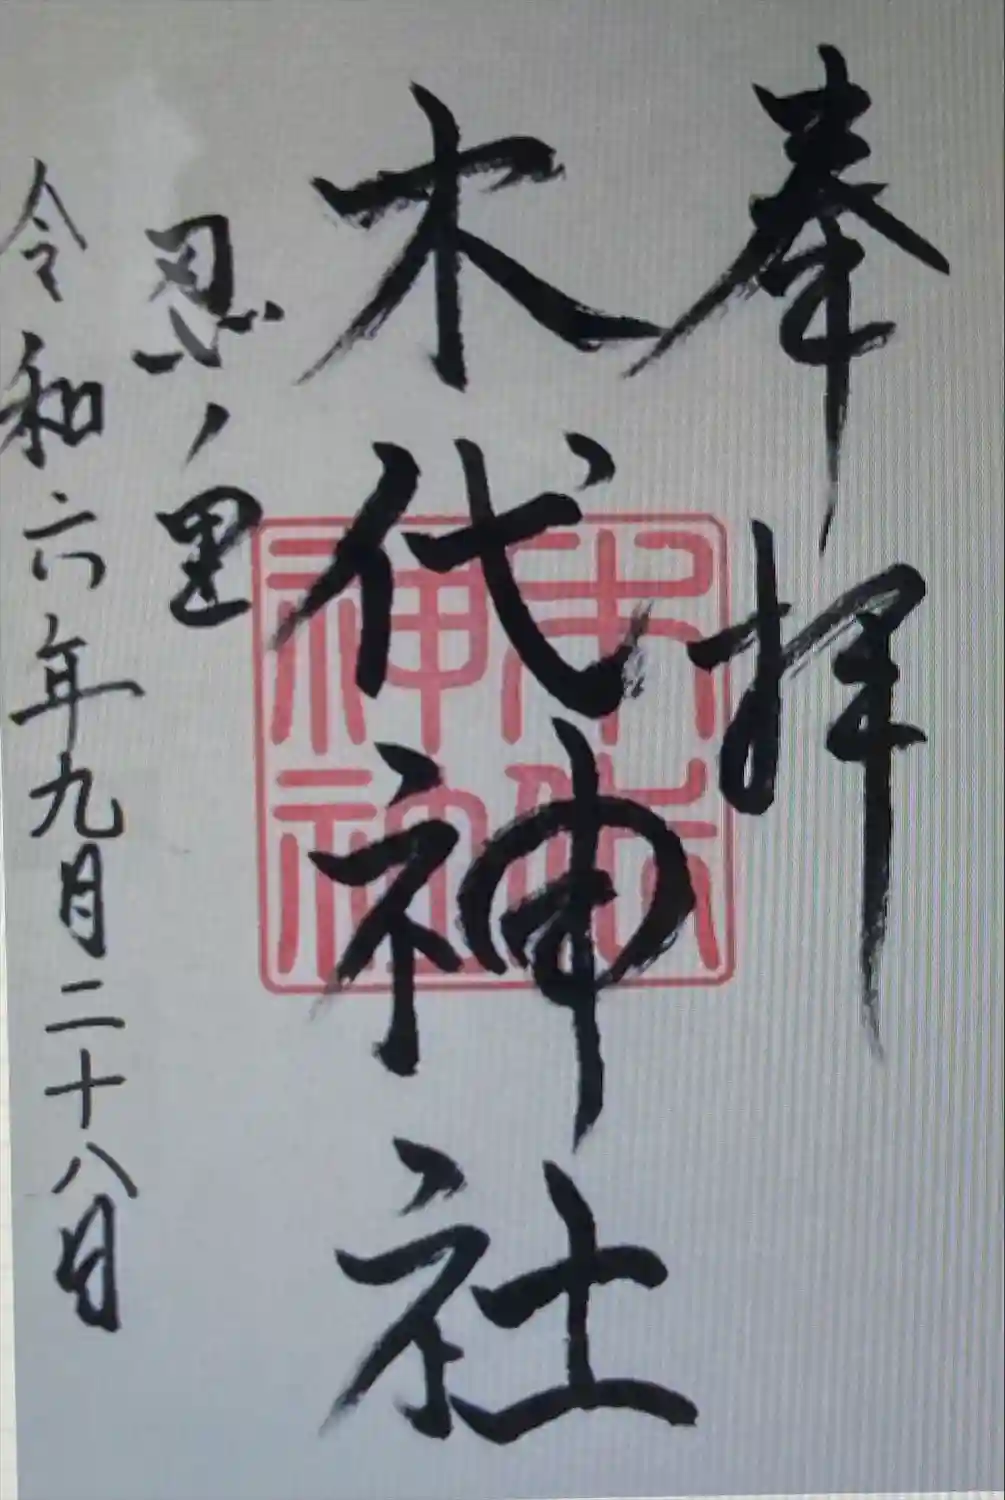 奉拝
木代神社
木代神社
忍ノ里
令和六年九月二十八日